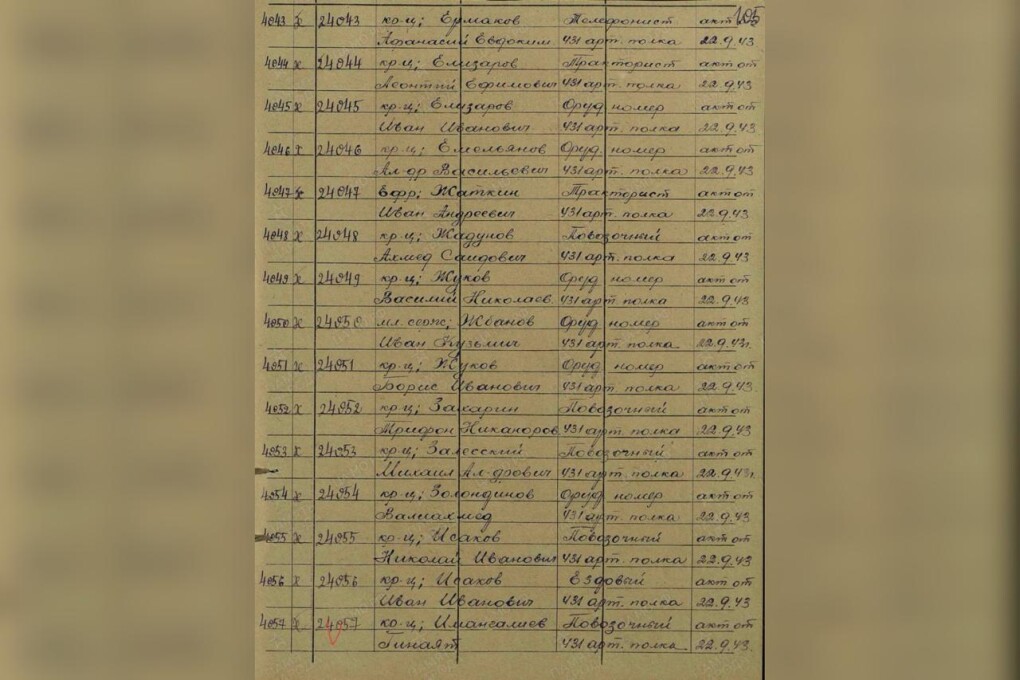 105
4043 х 24043 кр-ц; Ермаков Телефонист акт
Афанасий Евдоким. 431 арт. полка 22.9.43
4044 х 24044 кр-ц; Елизаров Тракторист акт от
Леонтий Ефимович 431 арт. полка 22.9.43
4045 х 24045 кр-ц; Елизаров Оруд номер акт от
Иван Иванович 431 арт. полка 22.9.43
4046 х 24046 кр-ц; Емельянов Оруд номер акт от
Ал-др Васильевич 431 арт. полка 22.9.43
4047 х 24047 Ефр; Жаткин Тракторист акт от
Иван Андреевич 431 арт. полка 22.9.43
4048 х 24048 кр-ц; Жадунов Повозочный акт от
Ахмед Саидович 431 арт. полка 22.9.43
4049 х 24049 кр-ц; Жуков Оруд номер акт от
Василий Николаев. 431 арт. полка 22.9.43
4050 х 24050 мл. серж; Жванов Оруд номер акт от
Иван Кузьмич 431 арт. полка 22.9.43г.
4051 х 24051 кр-ц; Жуков Оруд номер акт от
Борис Иванович 431 арт. полка 22.9.43.
4052 х 24052 кр-ц; Захарин Повозочный акт от
Трифон Никаноров 431 арт. полка 22.9.43
4053 х 24053 кр-ц; Залесский Повозочный акт от
Михаил Ал-дрович 431 арт. полка 22.9.43г
4054 х 24054 кр-ц; Золондинов Оруд номер акт от
Валиахмед 431 арт. полка 22.9.43
4055 х 24055 кр-ц; Исаков Повозочный акт от
Николай Иванович 431 арт. полка 22.9.43
4056 х 24056 кр-ц; Исаков Ездовый акт от
Иван Иванович 431 арт. полка 22.9.43
4057 х 24057 кр-ц; Имангалиев Повозочный акт от
Гинаят 431 арт. полка 22.9.43